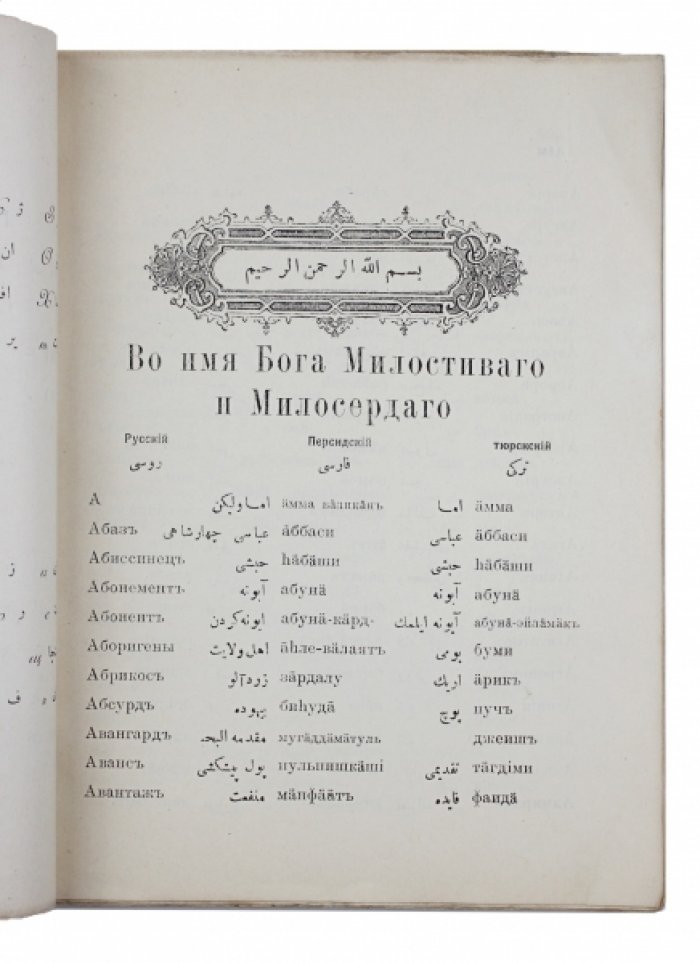 بسم الله الرحمن الرحيم
Во имя Бога Милостиваго
и Милосердаго
Русскій Персидскій тюркскій
روسی فارسی ترکی
А اما وليكن äмма вäликäнъ اما äмма
Абазъ عباسی چهارشاهی äббаси عباسی äббаси
Абиссинецъ حبشی häбäши حبشی häбäши
Абонементъ آبونه абунä آبونه абунä
Абонентъ ابونه كردن абунä-кäрд- آبونه ايلمك абунä-эйлäмäкъ
Аборигены اهل ولايت ähле-вäлаятъ بومی буми
Абрикосъ زردآلو зäрдалу اريك äрикъ
Абсурдъ بيهوده биhудä پوچ пучъ
Авангардъ مقدمه мугäддäмäтуль джеишъ
Авансъ پول پيشكشی пульпишкäші تقديمی тäгдіми
Авантажъ منفعت мäнфääтъ فايده фаидä